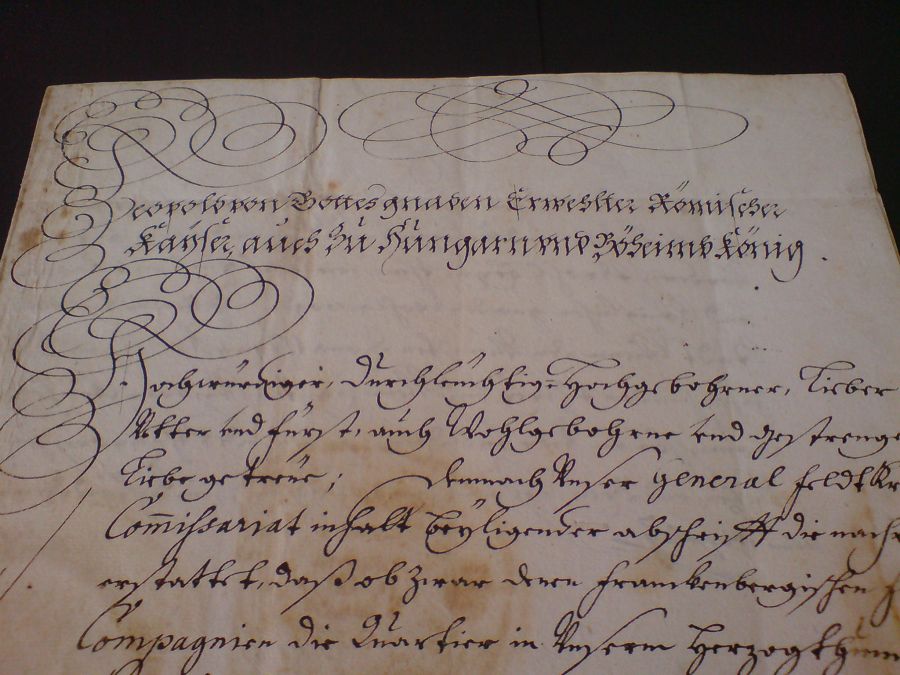 Leopold von Gottes gnaden Erwehlter Römischer
Kayser, auch zu Hungarn und Böheimb König.
Hochwürdiger, Durchleüchtig-Hochgebohrner, Lieber
Vetter und fürst, auch Wohlgebohrne und gestrenge
Liebe getreüe; demnach Unser General feldt Kr
Commissariat inhalt beyligender abschrifft die nach
erstattet, daß ob zwar denen franckenbergischen
Compagnien die Quartier in Unserm Herzogthumb